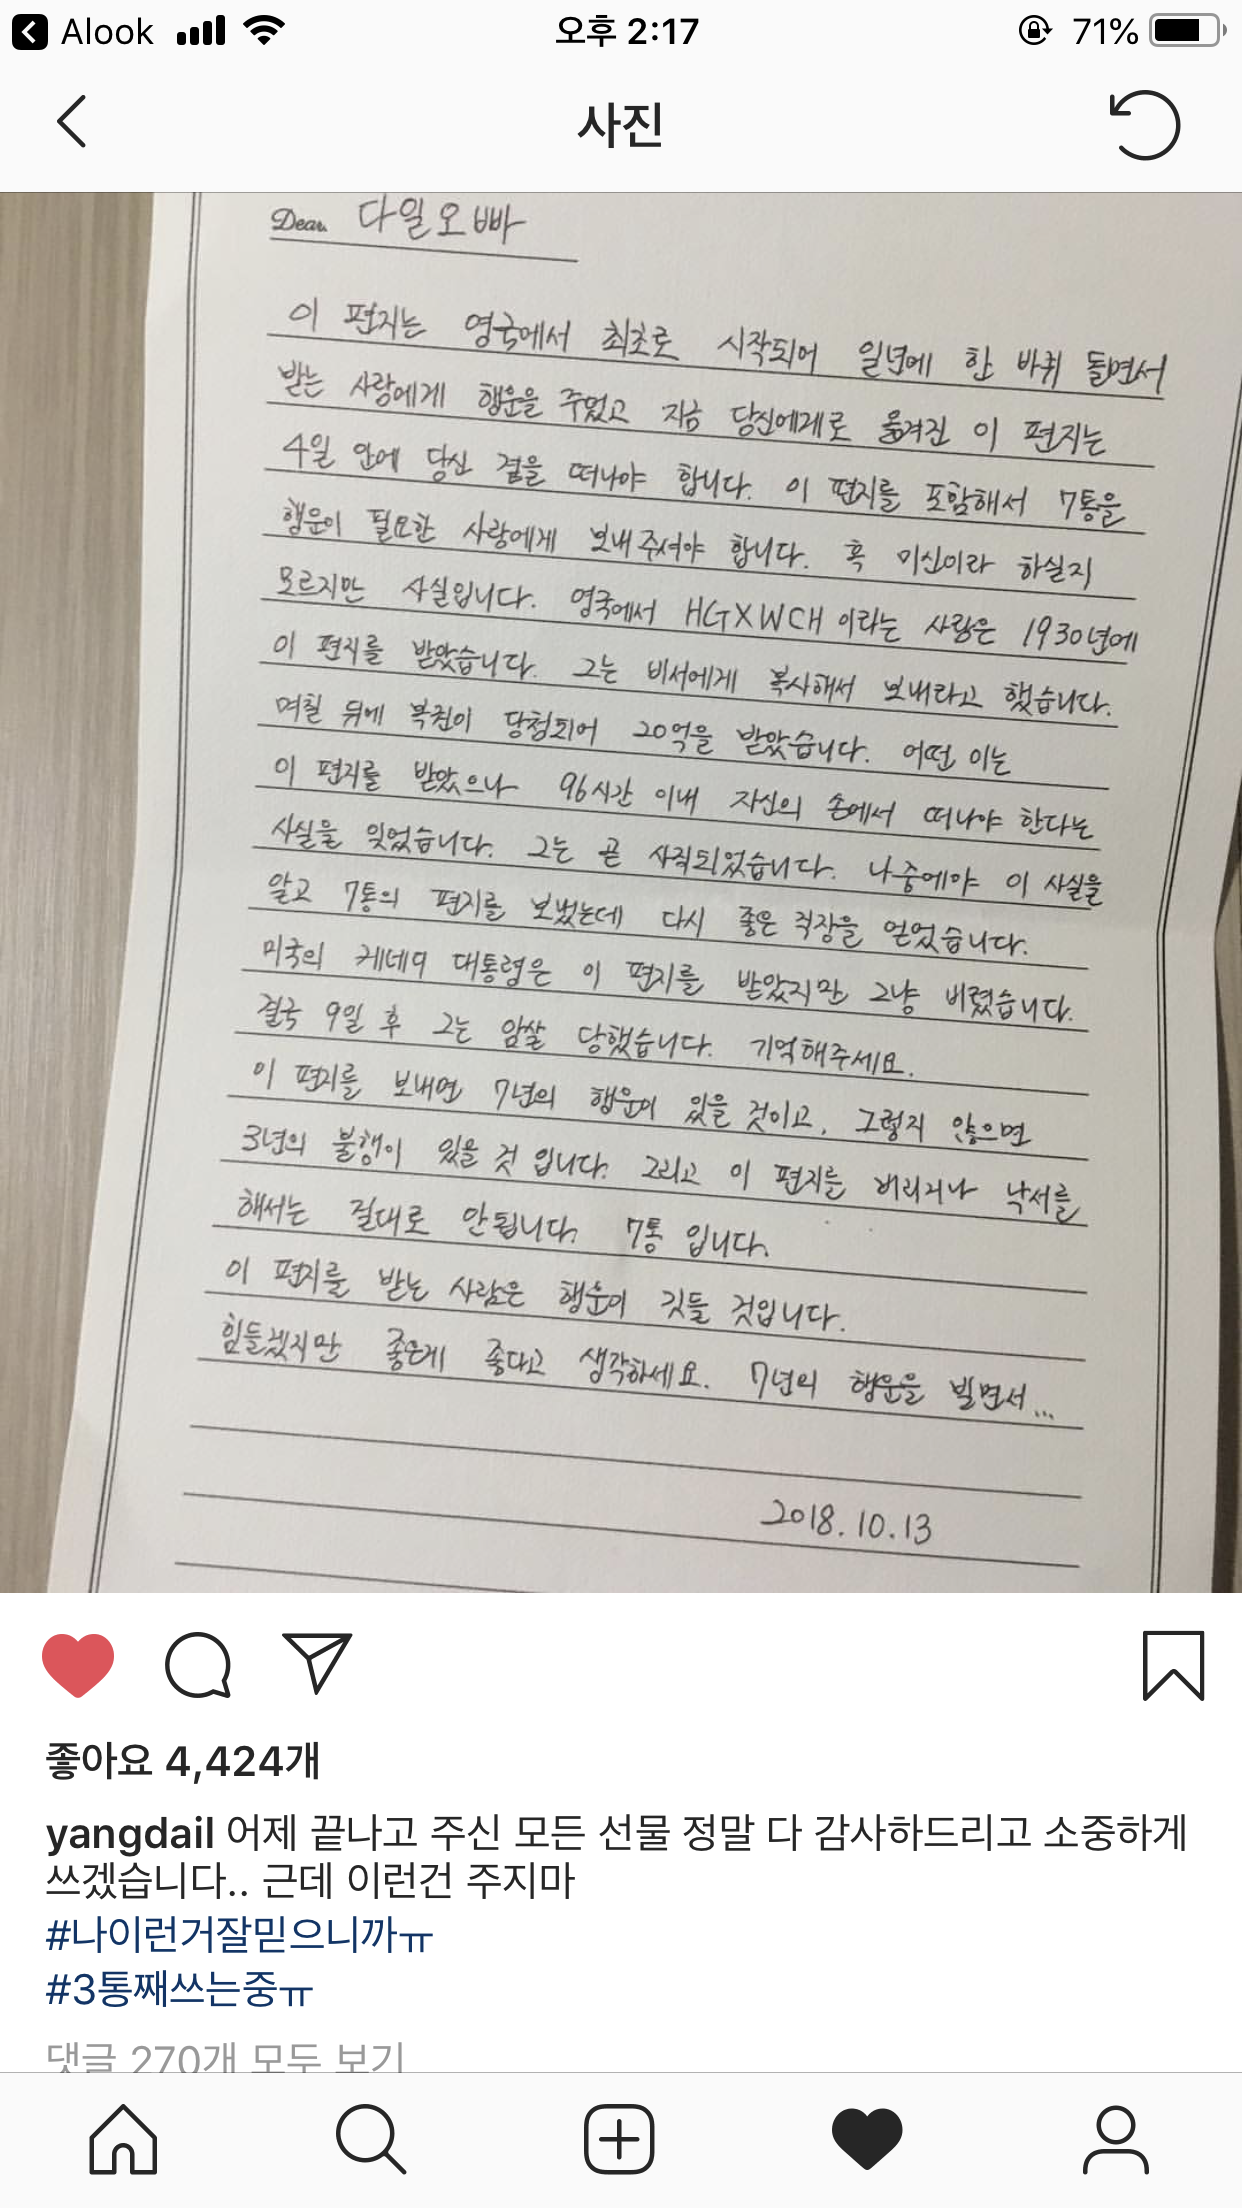 Alook
오후 2:17
71%
사진
Dear. 다일오빠
이 편지는 영국에서 최초로 시작되어 일년에 한 바퀴 돌면서
받는 사람에게 행운을 주었고 지금 당신에게로 옮겨진 이 편지는
4일 안에 당신 곁을 떠나야 합니다. 이 편지를 포함해서 7통을
행운이 필요한 사람에게 보내주셔야 합니다. 혹 미신이라 하실지
모르지만 사실입니다. 영국에서 HGXWCH이라는 사람은 1930년에
이 편지를 받았습니다. 그는 비서에게 복사해서 보내라고 했습니다.
며칠 뒤에 복권이 당첨되어 20억을 받았습니다. 어떤 이는
이 편지를 받았으나 96시간 이내 자신의 손에서 떠나야 한다는
사실을 잊었습니다. 그는 곧 사직되었습니다. 나중에야 이 사실을
알고 7통의 편지를 보냈는데 다시 좋은 직장을 얻었습니다.
미국의 케네디 대통령은 이 편지를 받았지만 그냥 버렸습니다.
결국 9일 후 그는 암살 당했습니다. 기억해주세요.
이 편지를 보내면 7년의 행운이 있을 것이고, 그렇지 않으면
3년의 불행이 있을 것 입니다. 그리고 이 편지를 버리거나 낙서를
해서는 절대로 안됩니다. 7통 입니다.
이 편지를 받는 사람은 행운이 깃들 것입니다.
힘들겠지만 좋은게 좋다고 생각하세요. 7년의 행운을 빌면서...
2018.10.13
좋아요 4,424개
yangdail 어제 끝나고 주신 모든 선물 정말 다 감사하드리고 소중하게
쓰겠습니다.. 근데 이런건 주지마
#나이런거잘믿으니까ㅠ
#3통째쓰는중ㅠ
댓글 270개 모두 보기